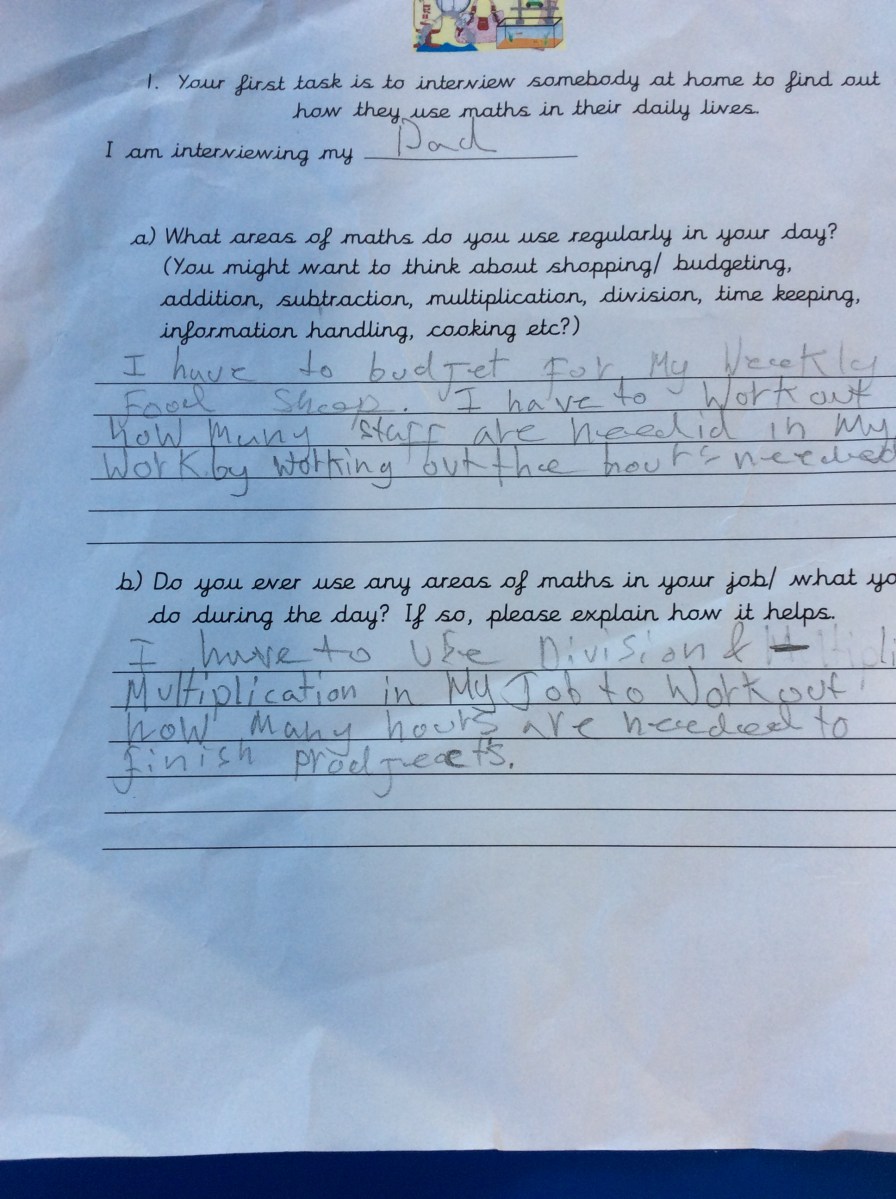 1. Your first task is to interview somebody at home to find out
how they use maths in their daily lives.
I am interviewing my Dad
a) What areas of maths do you use regularly in your day?
(You might want to think about shopping/ budgeting,
addition, subtraction, multiplication, division, time keeping,
information handling, cooking etc?)
I have to budget for My Weekly
Food Shoop. I have to Work out
how many staff are needid in My
Work by working out the hours needed
b) Do you ever use any areas of maths in your job/ what yo
do during the day? If so, please explain how it helps.
I have to Use Division &
Multiplication in My Job to Work out
how Many hours are needed to
finish